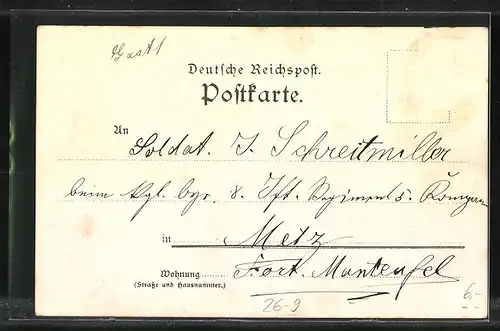 Gastl
Deutsche Reichspost.
Postkarte.
An Soldat. J. Schreitmiller
beim kgl. byr. 8. Ift. Regiment 5. Kompan
in Metz
Wohnung Fort. Manteufel
(Straße und Hausnummer.)
26-9
6,-